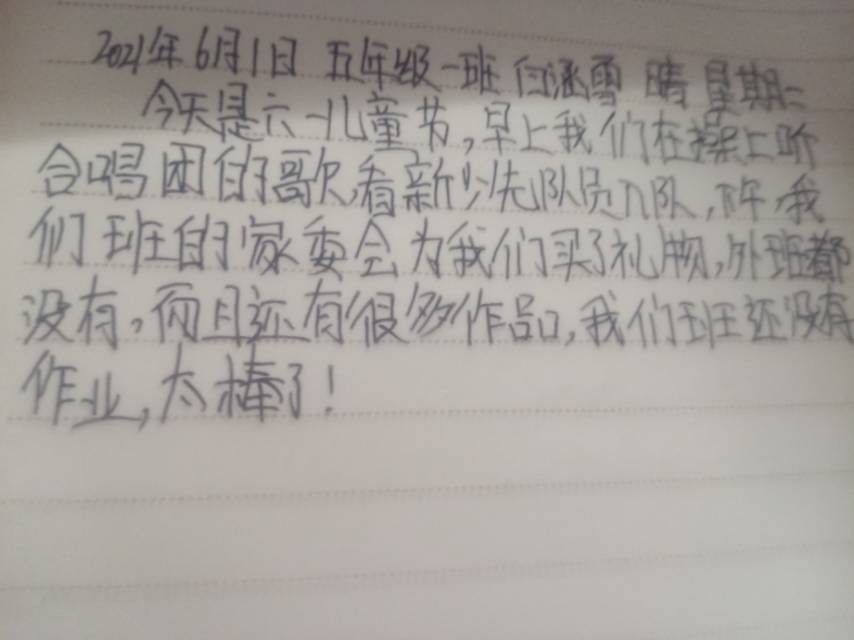 2021年6月1日 五年级一班 付涵雪 晴 星期二
今天是六一儿童节,早上我们在操上听
合唱团的歌,看新少先队员入队,下午,我
们班的家委会为我们买了礼物,外班都
没有,而且还有很多作品,我们班还没有
作业,太棒了!